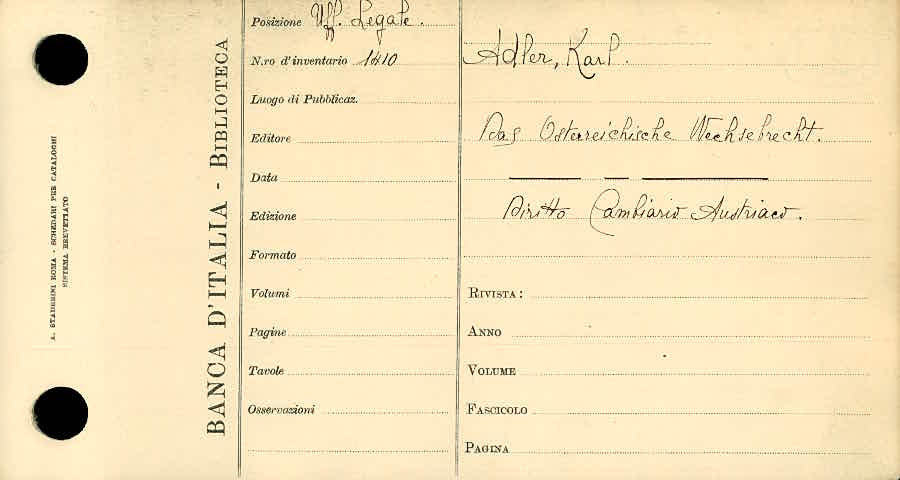 A. STADERINI ROMA - SCHEDARI PER CATALOGHI
SISTEMA BREVETTATO
BANCA D'ITALIA - BIBLIOTECA
Posizione Uff. Legale.
N.ro d'inventario 1410
Luogo di Pubblicaz.
Editore
Data
Edizione
Formato
Volumi
Pagine
Tavole
Osservazioni
Adler, Karl.
Das Osterreichische Wechselrecht.
Diritto Cambiario Austriaco.
RIVISTA:
ANNO
VOLUME
FASCICOLO
PAGINA